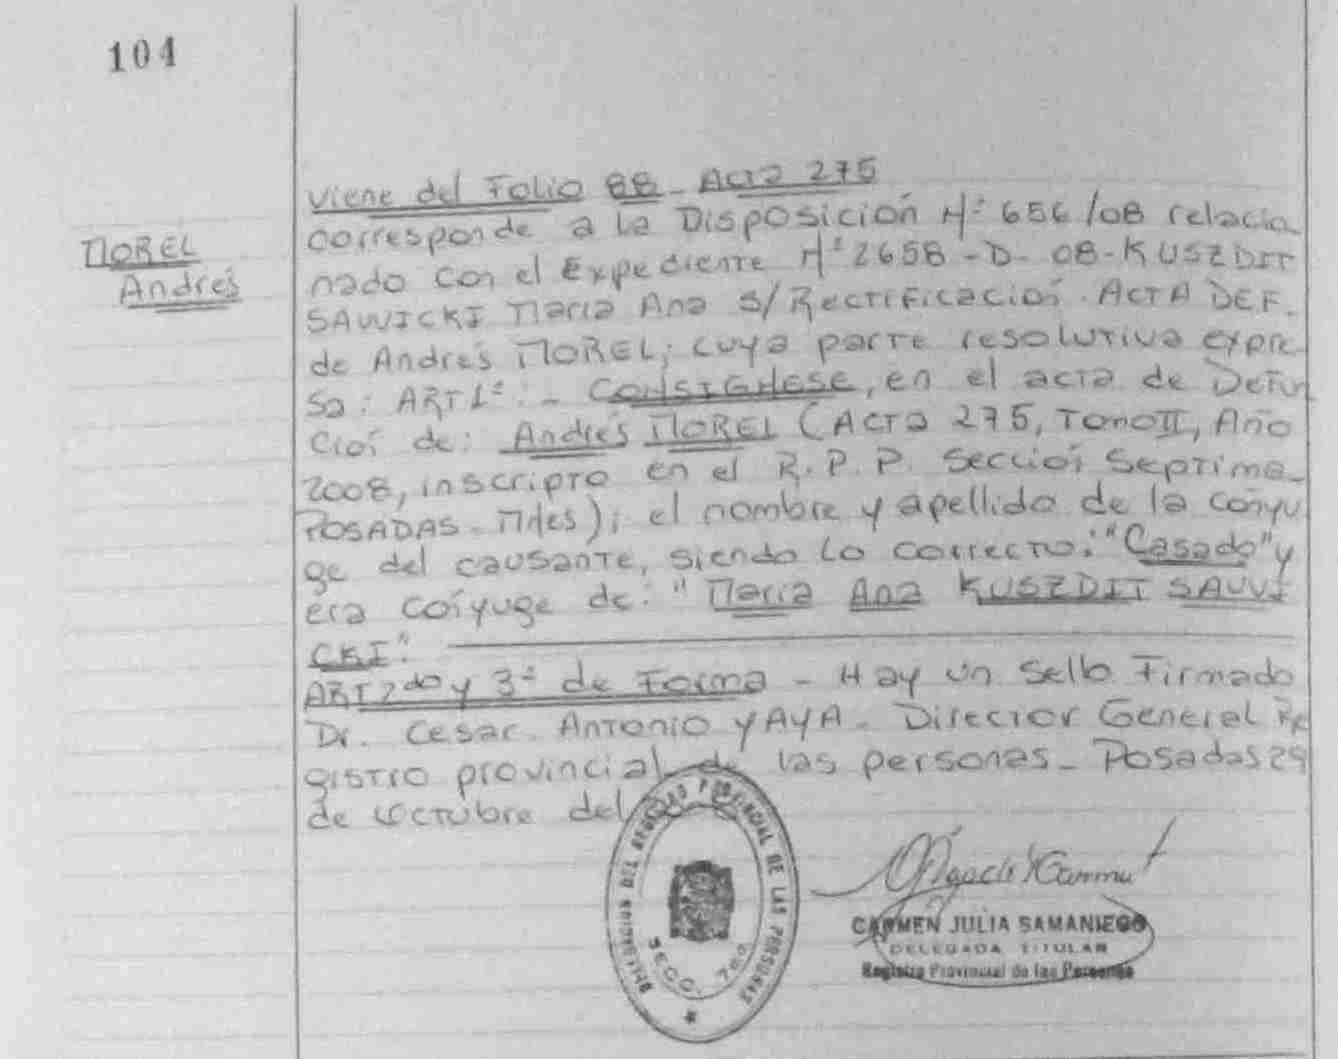 104
viene del Folio 88 - Acta 275
MOREL
Andrés
corresponde a la Disposición Nº 656/08 relacio
nado con el Expediente Nº 2658 - D - 08 - KUSZDIT
SAWICKI Maria Ana S/ Rectificación. ACTA DEF.
de Andrés MOREL; cuya parte resolutiva expre
sa: ART 1º: - CONSIGNESE, en el acta de Defun
ción de: Andrés MOREL (Acta 275, Tomo II, Año
2008, inscripto en el R.P.P. Sección Septima
POSADAS - Mnes); el nombre y apellido de la cónyu
ge del causante, siendo lo correcto: "Casado" y
era cónyuge de: "Maria Ana KUSZDIT SAWI
CKI".
ART 2do y 3º de Forma - Hay un sello Firmado
Dr. Cesar Antonio YAYA - Director General Re
gistro provincial de las personas - Posadas 29
de Octubre del
DELEGACION DEL REGISTRO PROVINCIAL DE LAS PERSONAS
SECC. 7ma
CARMEN JULIA SAMANIEGO
DELEGADA TITULAR
Registro Provincial de las Personas